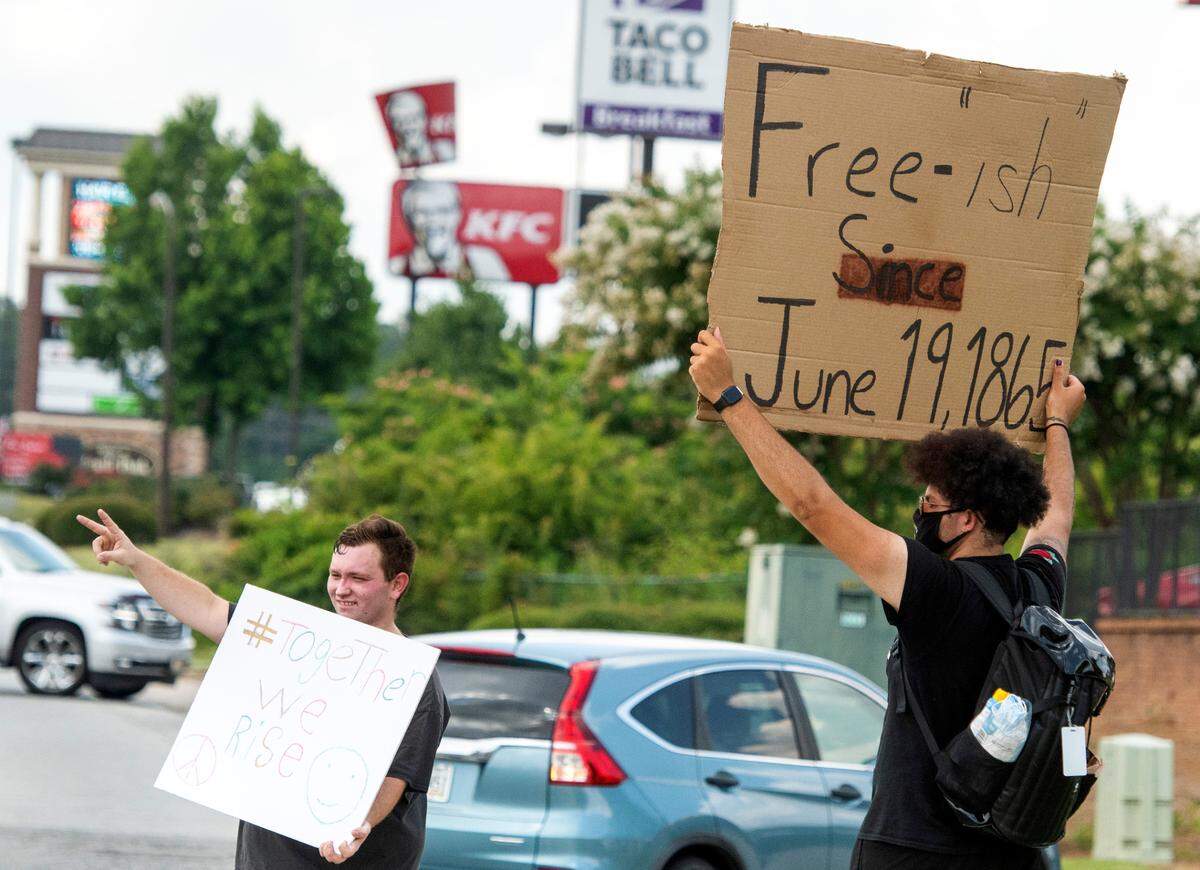 TACO
BELL
Breakfast
KFC
Free-"ish"
Since
June 19, 1865
#TogeTher
we
Rise